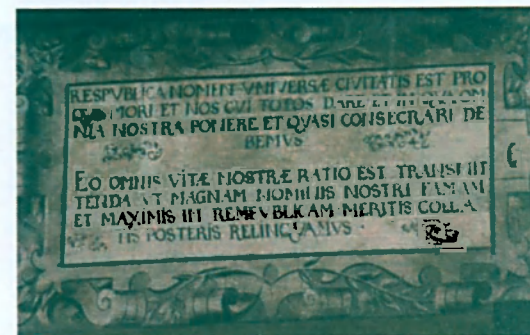 RESPVBLICA NOMEN VNIVERSÆ CIVITATIS EST PRO
MORI ET NOS CVI TOTOS DARE ET IN
NIA NOSTRA PONERE ET QVASI CONSECRARI DE
BEMVS
EO OMNIS VITÆ NOSTRÆ RATIO EST TRANSMIT
TENDA VT MAGNAM NOMINIS NOSTRI FAMAM
ET MAXIMIS IN REMPVBLICAM MERITIS COLLA
TIS POSTERIS RELINQVAMVS